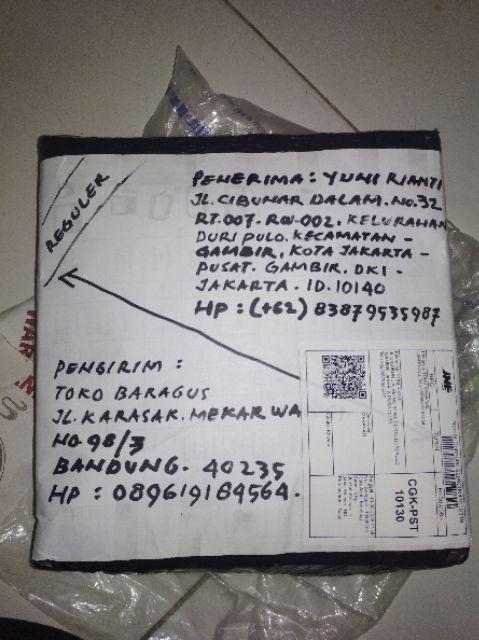 REGULER
PENERIMA: YUNI RIANTI
JL. CIBUNAR DALAM. NO.32
RT.007. RW-002. KELURAHAN
DURI PULO. KECAMATAN -
GAMBIR, KOTA JAKARTA -
PUSAT. GAMBIR. DKI -
JAKARTA. ID. 10140
HP: (+62) 83879535987
PENGIRIM :
TOKO BARAGUS
JL. KARASAK. MEKAR WA
NO 98/3
BANDUNG. 40235
HP : 089619184564.
JNE
CGK-PST
10130